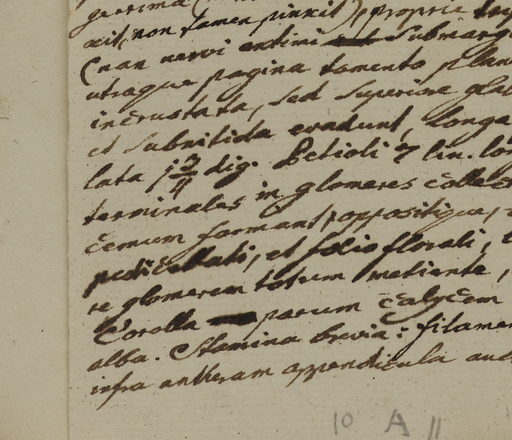 (non tamen pinxit), propria
xit, non tamen pinxit), propria
(nam nervi extimi submarg
utraque pagina tomento plan
incrustata, sed superiore gla
et subnitida evadunt, longa
lata 1 3/4 dig. Petioli 7 lin. lon
terminales in glomeres collect
cemum formant, oppositique,
pedicellati, et folio florali,
re glomerem totum mediente,
Corolla parum calycem
alba. Stamina brevia: filamen
infra antheram appendicula auc
10 A 11